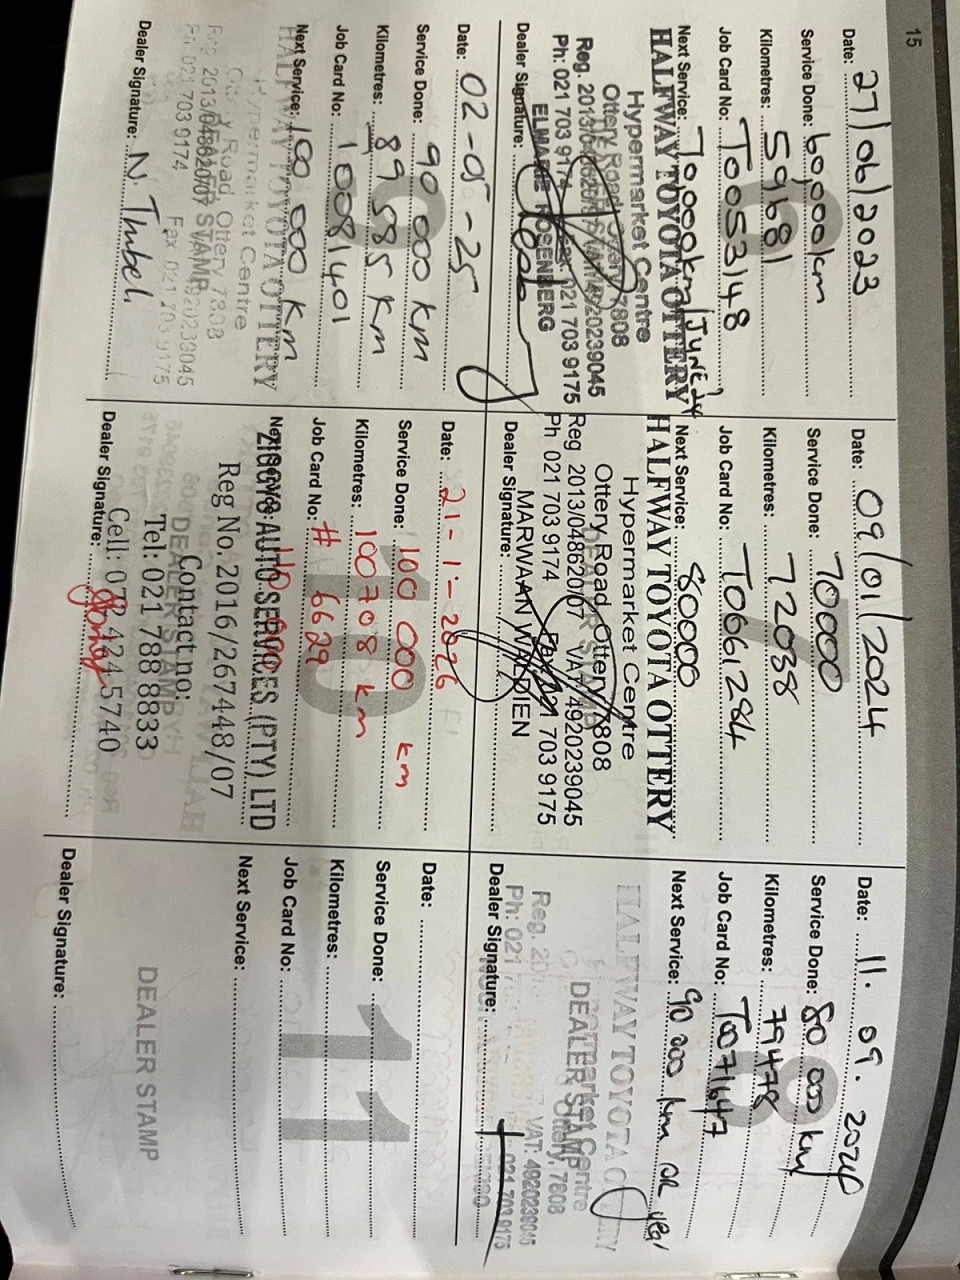 15
6
Date: 27/06/2023
Service Done: 60,000km
Kilometres: 59681
Job Card No: T0053148
Next Service: 70,000km/June 24
HALFWAY TOYOTA OTTERY
Hypermarket Centre
Ottery Road Ottery 7808
Reg. 2013/048620/07 VAT:4920239045
Ph: 021 703 9174 Fax: 021 703 9175
ELMARIE ROSENBERG
Dealer Signature:
7
Date: 09/01/2024
Service Done: 70000
Kilometres: 72038
Job Card No: T0661284
Next Service: 80000
HALFWAY TOYOTA OTTERY
Hypermarket Centre
Ottery Road Ottery 7808
Reg 2013/048620/07 VAT4920239045
Ph 021 703 9174 Fax 021 703 9175
MARWAAN
Dealer Signature:
8
Date: 11.09.2024
Service Done: 80 000 km
Kilometres: 79478
Job Card No: T0071647
Next Service: 90 000 km or year
HALFWAY TOYOTA OTTERY
Hypermarket Centre
DEALER STAMP
Ottery, 7808
Reg. VAT: 4920239045
Ph: 021 021 703 9175
Dealer Signature:
9
Date: 02-05-25
Service Done: 90 000 km
Kilometres: 89 585 km
Job Card No: 10081401
Next Service: 100 000 km
HALFWAY TOYOTA OTTERY
Hypermarket Centre
Ottery Road Ottery 7808
Reg 2013/048620/07 VAT4920239045
DEALER STAMP
Ph 021 703 9174 Fax 021 703 9175
Dealer Signature: N.
10
Date: 21-1-2026
Service Done: 100 000 km
Kilometres: 100708 km
Job Card No: # 6629
Next Service:
ZIGGYS AUTO SERVICES (PTY) LTD
Reg No. 2016/267448/07
Contact no:
DEALER STAMP
Tel: 021 788 8833
Cell: 072 424 5740
Dealer Signature:
11
Date:
Service Done:
Kilometres:
Job Card No:
Next Service:
DEALER STAMP
Dealer Signature: